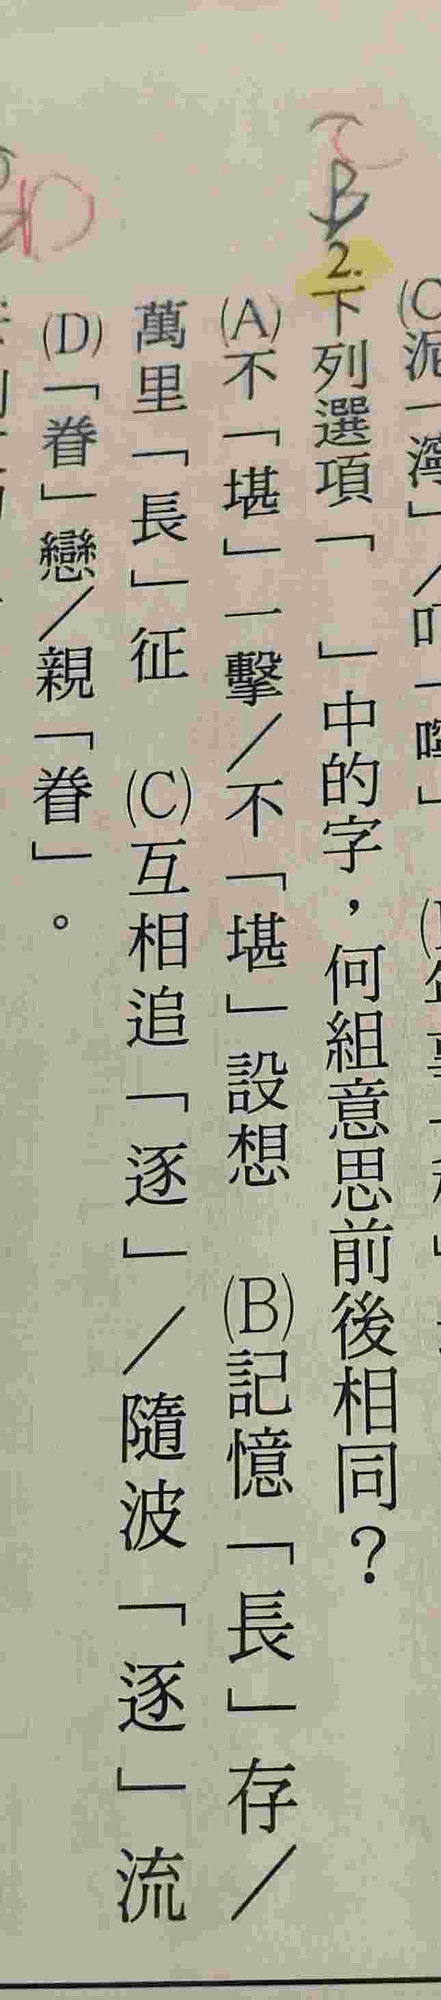 (C)泥「濘」/叮「嚀」
C
B
2.下列選項「　」中的字，何組意思前後相同？
(A)不「堪」一擊/不「堪」設想　(B)記憶「長」存/
萬里「長」征　(C)互相追「逐」/隨波「逐」流
(D)「眷」戀/親「眷」。
D